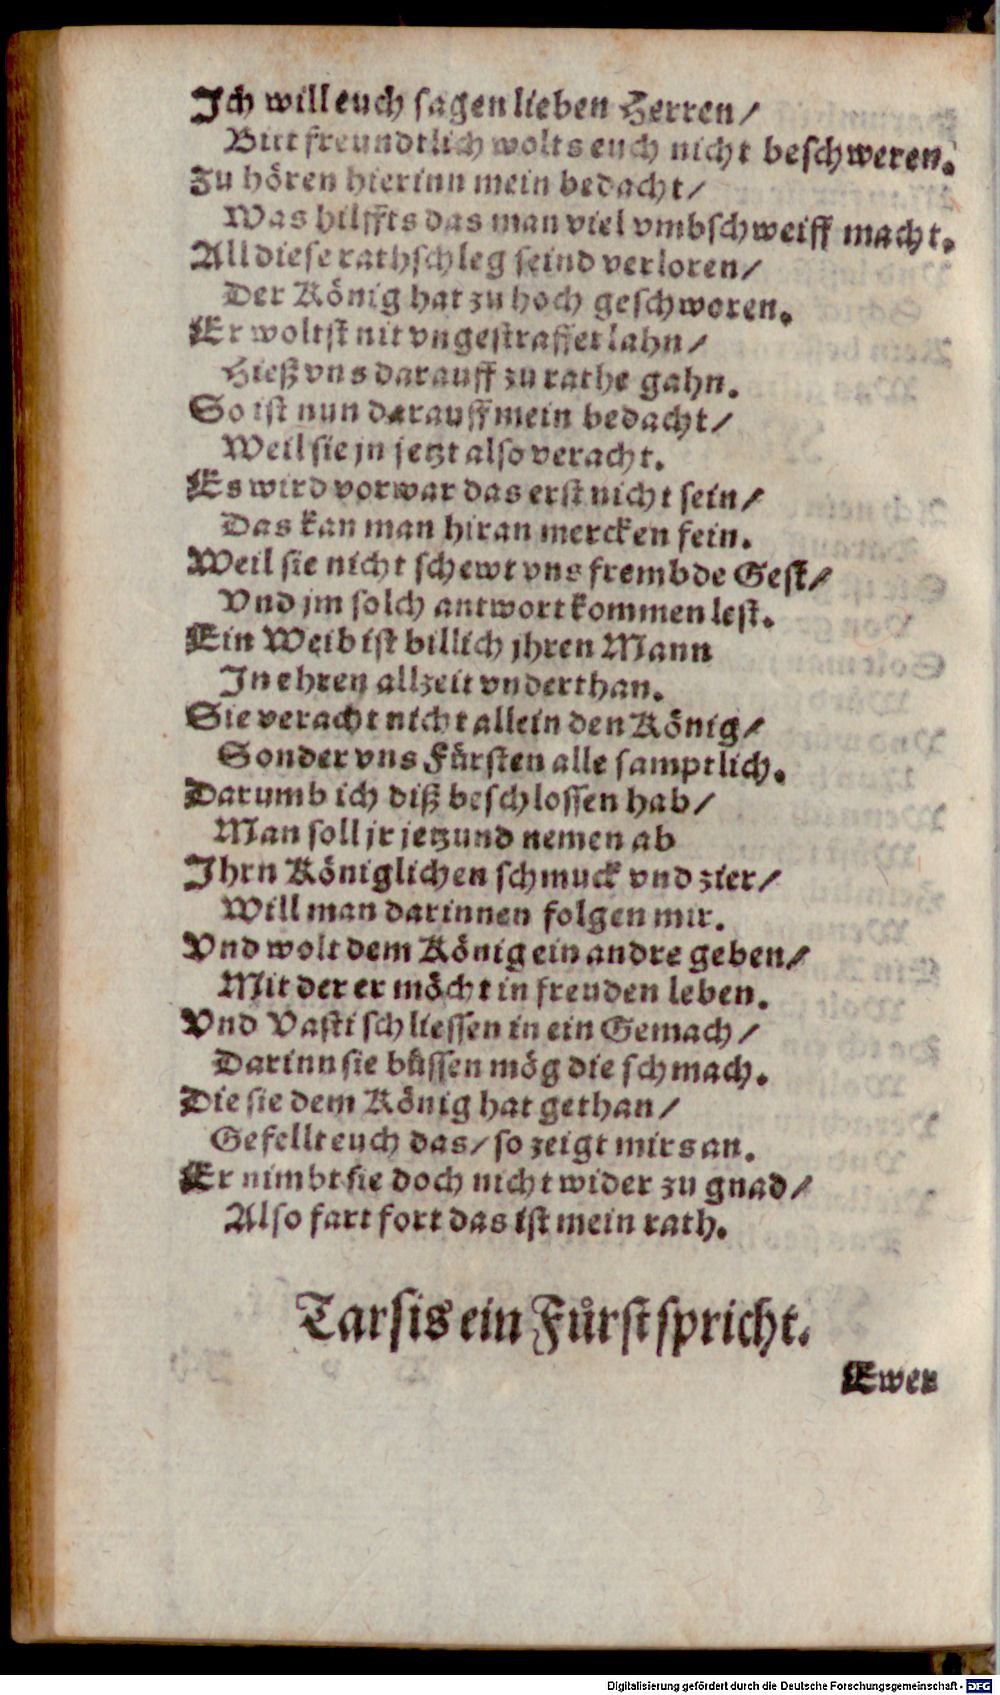 Ich will euch sagen lieben Herren/
Bitt freundtlich wolts euch nicht beschweren.
Zu hören hierinn mein bedacht/
Was hilffts das man viel vmbschweiff macht.
All diese rathschleg seind verloren/
Der König hat zu hoch geschworen.
Er woltst nit vngestraffet lahn/
Hieß vns darauff zu rathe gahn.
So ist nun darauff mein bedacht/
Weil sie jn jetzt also veracht.
Es wird vorwar das erst nicht sein/
Das kan man hiran mercken fein.
Weil sie nicht schewt vns frembde Gest/
Vnd jm solch antwort kommen lest.
Ein Weib ist billich jhren Mann
In ehren allzeit vnderthan.
Sie veracht nicht allein den König/
Sonder vns Fürsten alle samptlich.
Darumb ich diß beschlossen hab/
Man soll jr jetzund nemen ab
Ihrn Königlichen schmuck vnd zier/
Will man darinnen folgen mir.
Vnd wolt dem König ein andre geben/
Mit der er möcht in freuden leben.
Vnd Vasti schliessen in ein Gemach/
Darinn sie büssen mög die schmach.
Die sie dem König hat gethan/
Gefellt euch das/ so zeigt mirs an.
Er nimbt sie doch nicht wider zu gnad/
Also fart fort das ist mein rath.
Tarsis ein Fůrst spricht.
Ewer
Digitalisierung gefördert durch die Deutsche Forschungsgemeinschaft - DFG